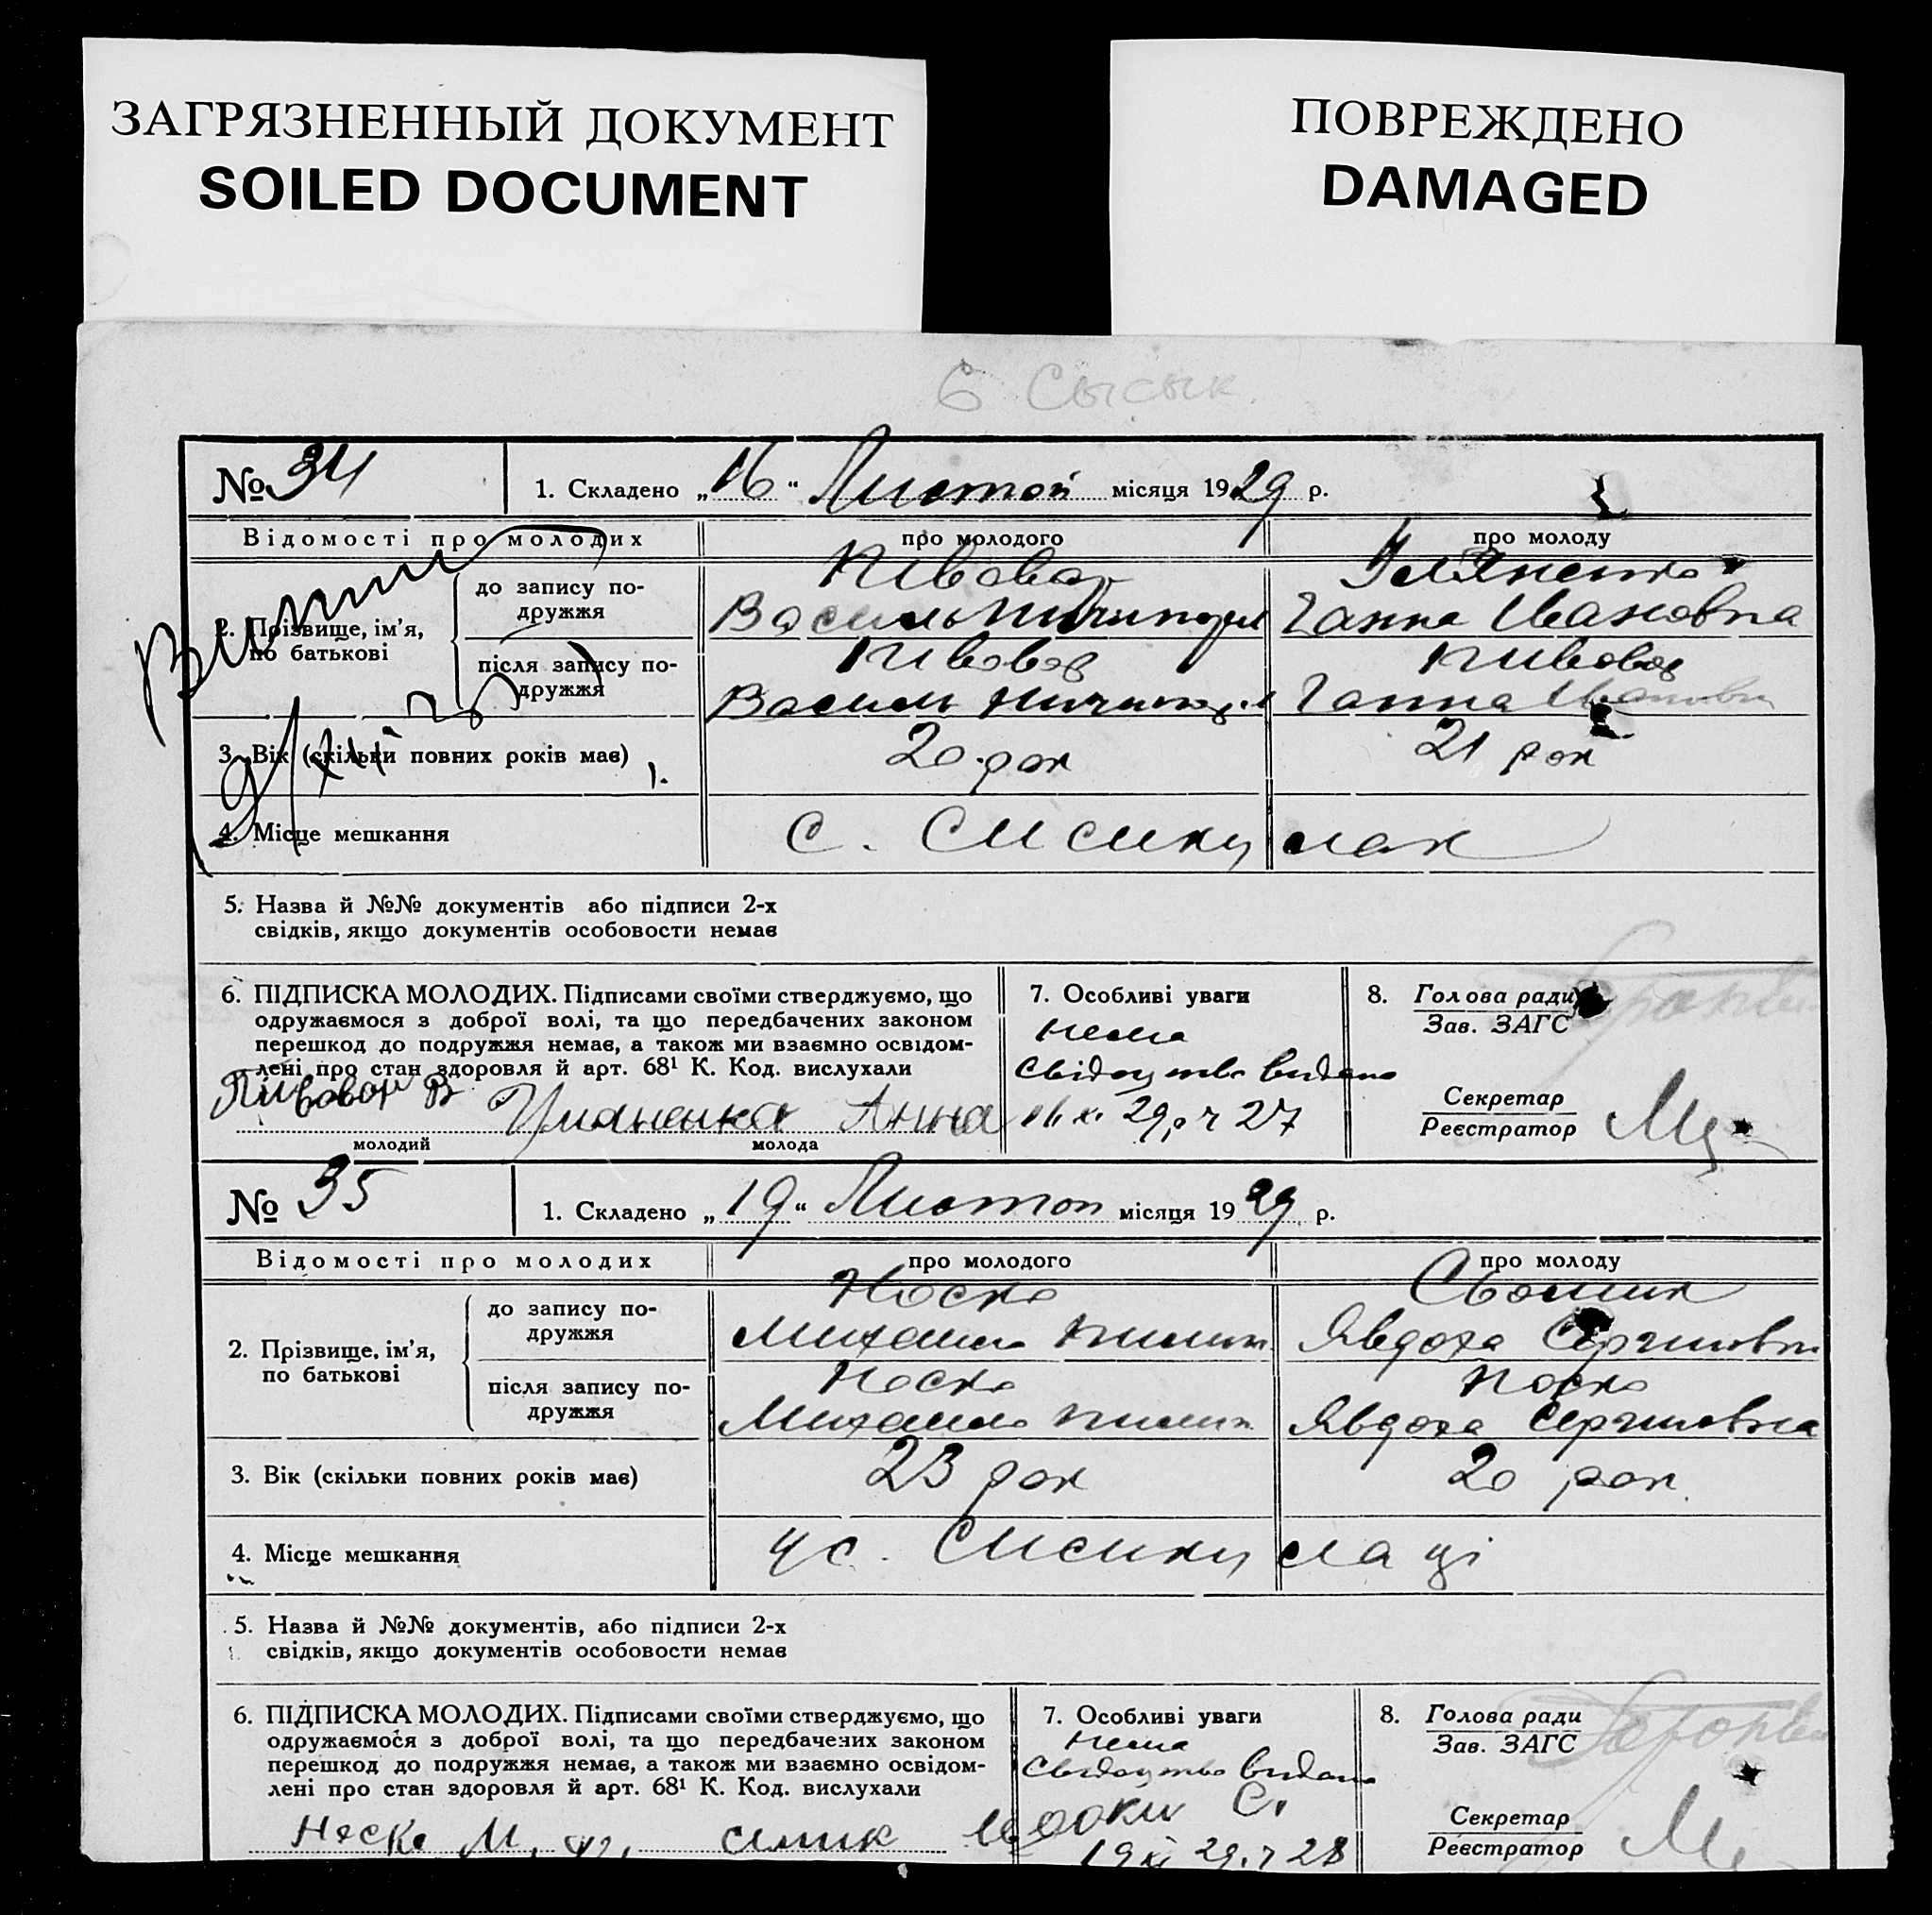 ЗАГРЯЗНЕННЫЙ ДОКУМЕНТ
SOILED DOCUMENT
ПОВРЕЖДЕНО
DAMAGED
6 Сысык.
№ 34
1. Складено „16“ Листоп місяця 1929 р.
Відомості про молодих
про молодого
про молоду
2. Прізвище, ім’я, по батькові
до запису по-
дружжя
Пивовар
Василь
Ганна Ивановна
після запису по-
дружжя
Пивовар
Василь
Пивовар
Ганна Ивановна
3. Вік (скільки повних років має)
20 рок
21 рок
4. Місце мешкання
с.
5. Назва й №№ документів або підписи 2-х
свідків, якщо документів особовости немає
6. ПІДПИСКА МОЛОДИХ. Підписами своїми стверджуємо, що
одружаємося з доброї волі, та що передбачених законом
перешкод до подружжя немає, а також ми взаємно освідом-
лені про стан здоровля й арт. 68¹ К. Код. вислухали
Пивовар В
Анна
молодий
молода
7. Особливі уваги
нема
свідоцтво видано
16 XI 29 р ч 27
8. Голова ради
Зав. ЗАГС
Секретар
Реєстратор
№ 35
1. Складено „19“ Листоп місяця 1929 р.
Відомості про молодих
про молодого
про молоду
2. Прізвище, ім’я,
по батькові
до запису по-
дружжя
Носко
Михайло
Явдоха
після запису по-
дружжя
Носко
Михайло
Носко
Явдоха
3. Вік (скільки повних років має)
23 рок
20 рок.
4. Місце мешкання
5. Назва й №№ документів, або підписи 2-х
свідків, якщо документів особовости немає
6. ПІДПИСКА МОЛОДИХ. Підписами своїми стверджуємо, що
одружаємося з доброї волі, та що передбачених законом
перешкод до подружжя немає, а також ми взаємно освідом-
лені про стан здоровля й арт. 68¹ К. Код. вислухали
Носко М.
7. Особливі уваги
нема
свідоцтво видано
19 XI 29. ч 28
8. Голова ради
Зав. ЗАГС
Секретар
Реєстратор